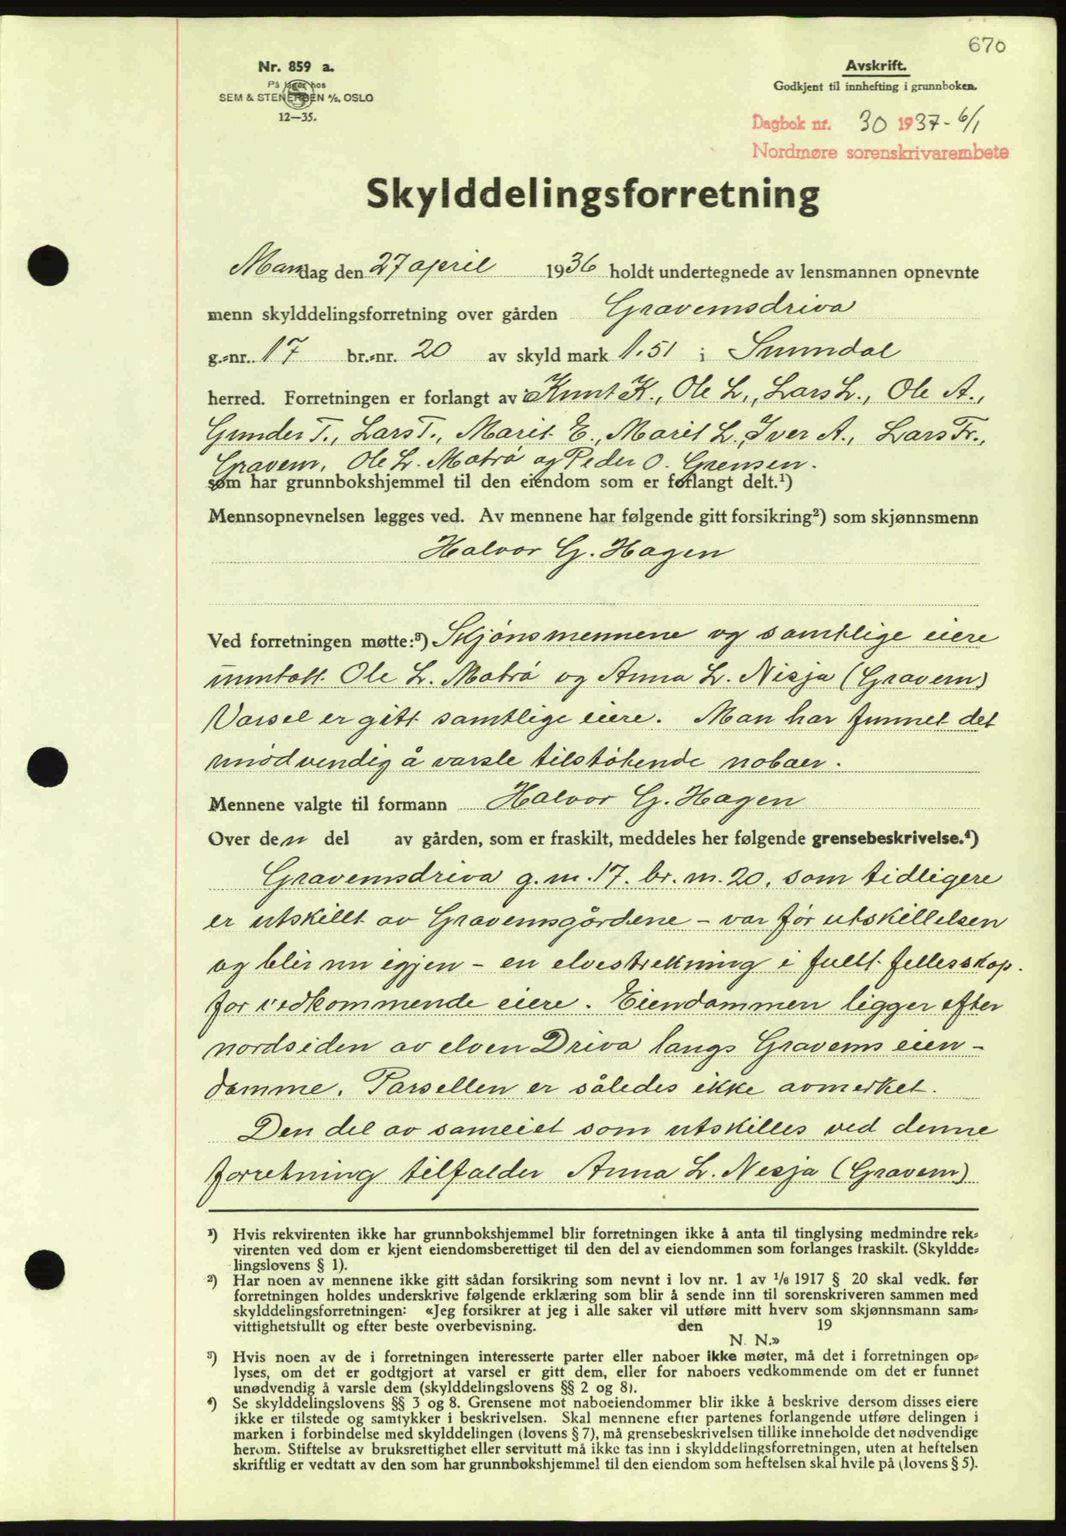 670
Nr. 859 a.
På lager hos
SEM & STENERSEN A/S, OSLO
12—35.
Avskrift.
Godkjent til innhefting i grunnboken.
Dagbok nr. 30 1937 - 6/1
Nordmøre sorenskrivarembete
Skylddelingsforretning
Mandag den 27 april 1936 holdt undertegnede av lensmannen opnevnte
menn skylddelingsforretning over gården Gravemsdriva
g.=nr. 17 br.=nr. 20 av skyld mark 1.51 i Sunndal
herred. Forretningen er forlangt av Knut K., Ole L., Lars L., Ole A.,
Gunder T., Lars T., Marit E., Marit L., Iver A., Lars Fr.,
Gravem, Ole L. Mobrø og Peder O. Grensen.
som har grunnbokshjemmel til den eiendom som er forlangt delt.¹)
Mennsopnevnelsen legges ved. Av mennene har følgende gitt forsikring²) som skjønnsmenn
Halvor G. Hagen
Ved forretningen møtte:³) Skjønsmennene og samtlige eiere
unntatt Ole L. Mobrø og Anna L. Nisja (Gravem)
Varsel er gitt samtlige eiere. Man har funnet det
unødvendig å varsle tilstøtende naboer.
Mennene valgte til formann Halvor G. Hagen
Over den del av gården, som er fraskilt, meddeles her følgende grensebeskrivelse.⁴)
Gravemsdriva g.nr. 17. br.nr. 20, som tidligere
er utskillt av Gravemsgårdene - var før utskillelsen
og blir nu igjen - en elvestrekning i fullt fellesskap
for vedkommende eiere. Eiendommen ligger efter
nordsiden av elven Driva langs Gravems eien-
domme. Parsellen er således ikke avmerket.
Den del av sameiet som utskilles ved denne
forretning tilfalder Anna L. Nesja (Gravem)
¹) Hvis rekvirenten ikke har grunnbokshjemmel blir forretningen ikke å anta til tinglysing medmindre rek=
virenten ved dom er kjent eiendomsberettiget til den del av eiendommen som forlanges fraskilt. (Skyldde=
lingslovens § 1).
²) Har noen av mennene ikke gitt sådan forsikring som nevnt i lov nr. 1 av 1/6 1917 § 20 skal vedk. før
forretningen holdes underskrive følgende erklæring som blir å sende inn til sorenskriveren sammen med
skylddelingsforretningen: «Jeg forsikrer at jeg i alle saker vil utføre mitt hverv som skjønnsmann sam=
vittighetsfullt og efter beste overbevisning. den 19
N. N.»
³) Hvis noen av de i forretningen interesserte parter eller naboer ikke møter, må det i forretningen op=
lyses, om det er godtgjort at varsel er gitt dem, eller for naboers vedkommende om det er funnet
unødvendig å varsle dem (skylddelingslovens §§ 2 og 8).
⁴) Se skylddelingslovens §§ 3 og 8. Grensene mot naboeiendommer blir ikke å beskrive dersom disses eiere
ikke er tilstede og samtykker i beskrivelsen. Skal mennene efter partenes forlangende utføre delingen i
marken i forbindelse med skylddelingen (lovens § 7), må grensebeskrivelsen tillike inneholde det nødvendige
herom. Stiftelse av bruksrettighet eller servitutt må ikke tas inn i skylddelingsforretningen, uten at heftelsen
skriftlig er vedtatt av den som har grunnbokshjemmel til den eiendom som heftelsen skal hvile på (lovens § 5).